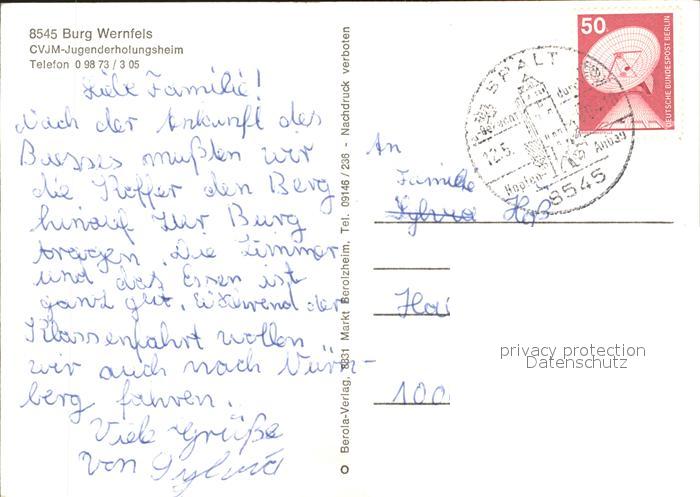 8545 Burg Wernfels
CVJM-Jugenderholungsheim
Telefon 0 98 73 / 3 05
Liebe Familie!
Nach der Ankunft des
Busses mußten wir
die Koffer den Berg
hinauf zur Burg
tragen. Die Zimmer
und das Essen ist
ganz gut. Während der
Klassenfahrt wollen
wir auch nach Nürn-
berg fahren.
Viele Grüße
von Sylvia
Berola-Verlag, 8831 Markt Berolzheim, Tel. 09146/236 - Nachdruck verboten
50
DEUTSCHE BUNDESPOST BERLIN
SPALT
bekannt durch
12.5.
Hopfen- Anbau
8545
An
Familie
Sylvia Haß
Hai
100
privacy protection
Datenschutz